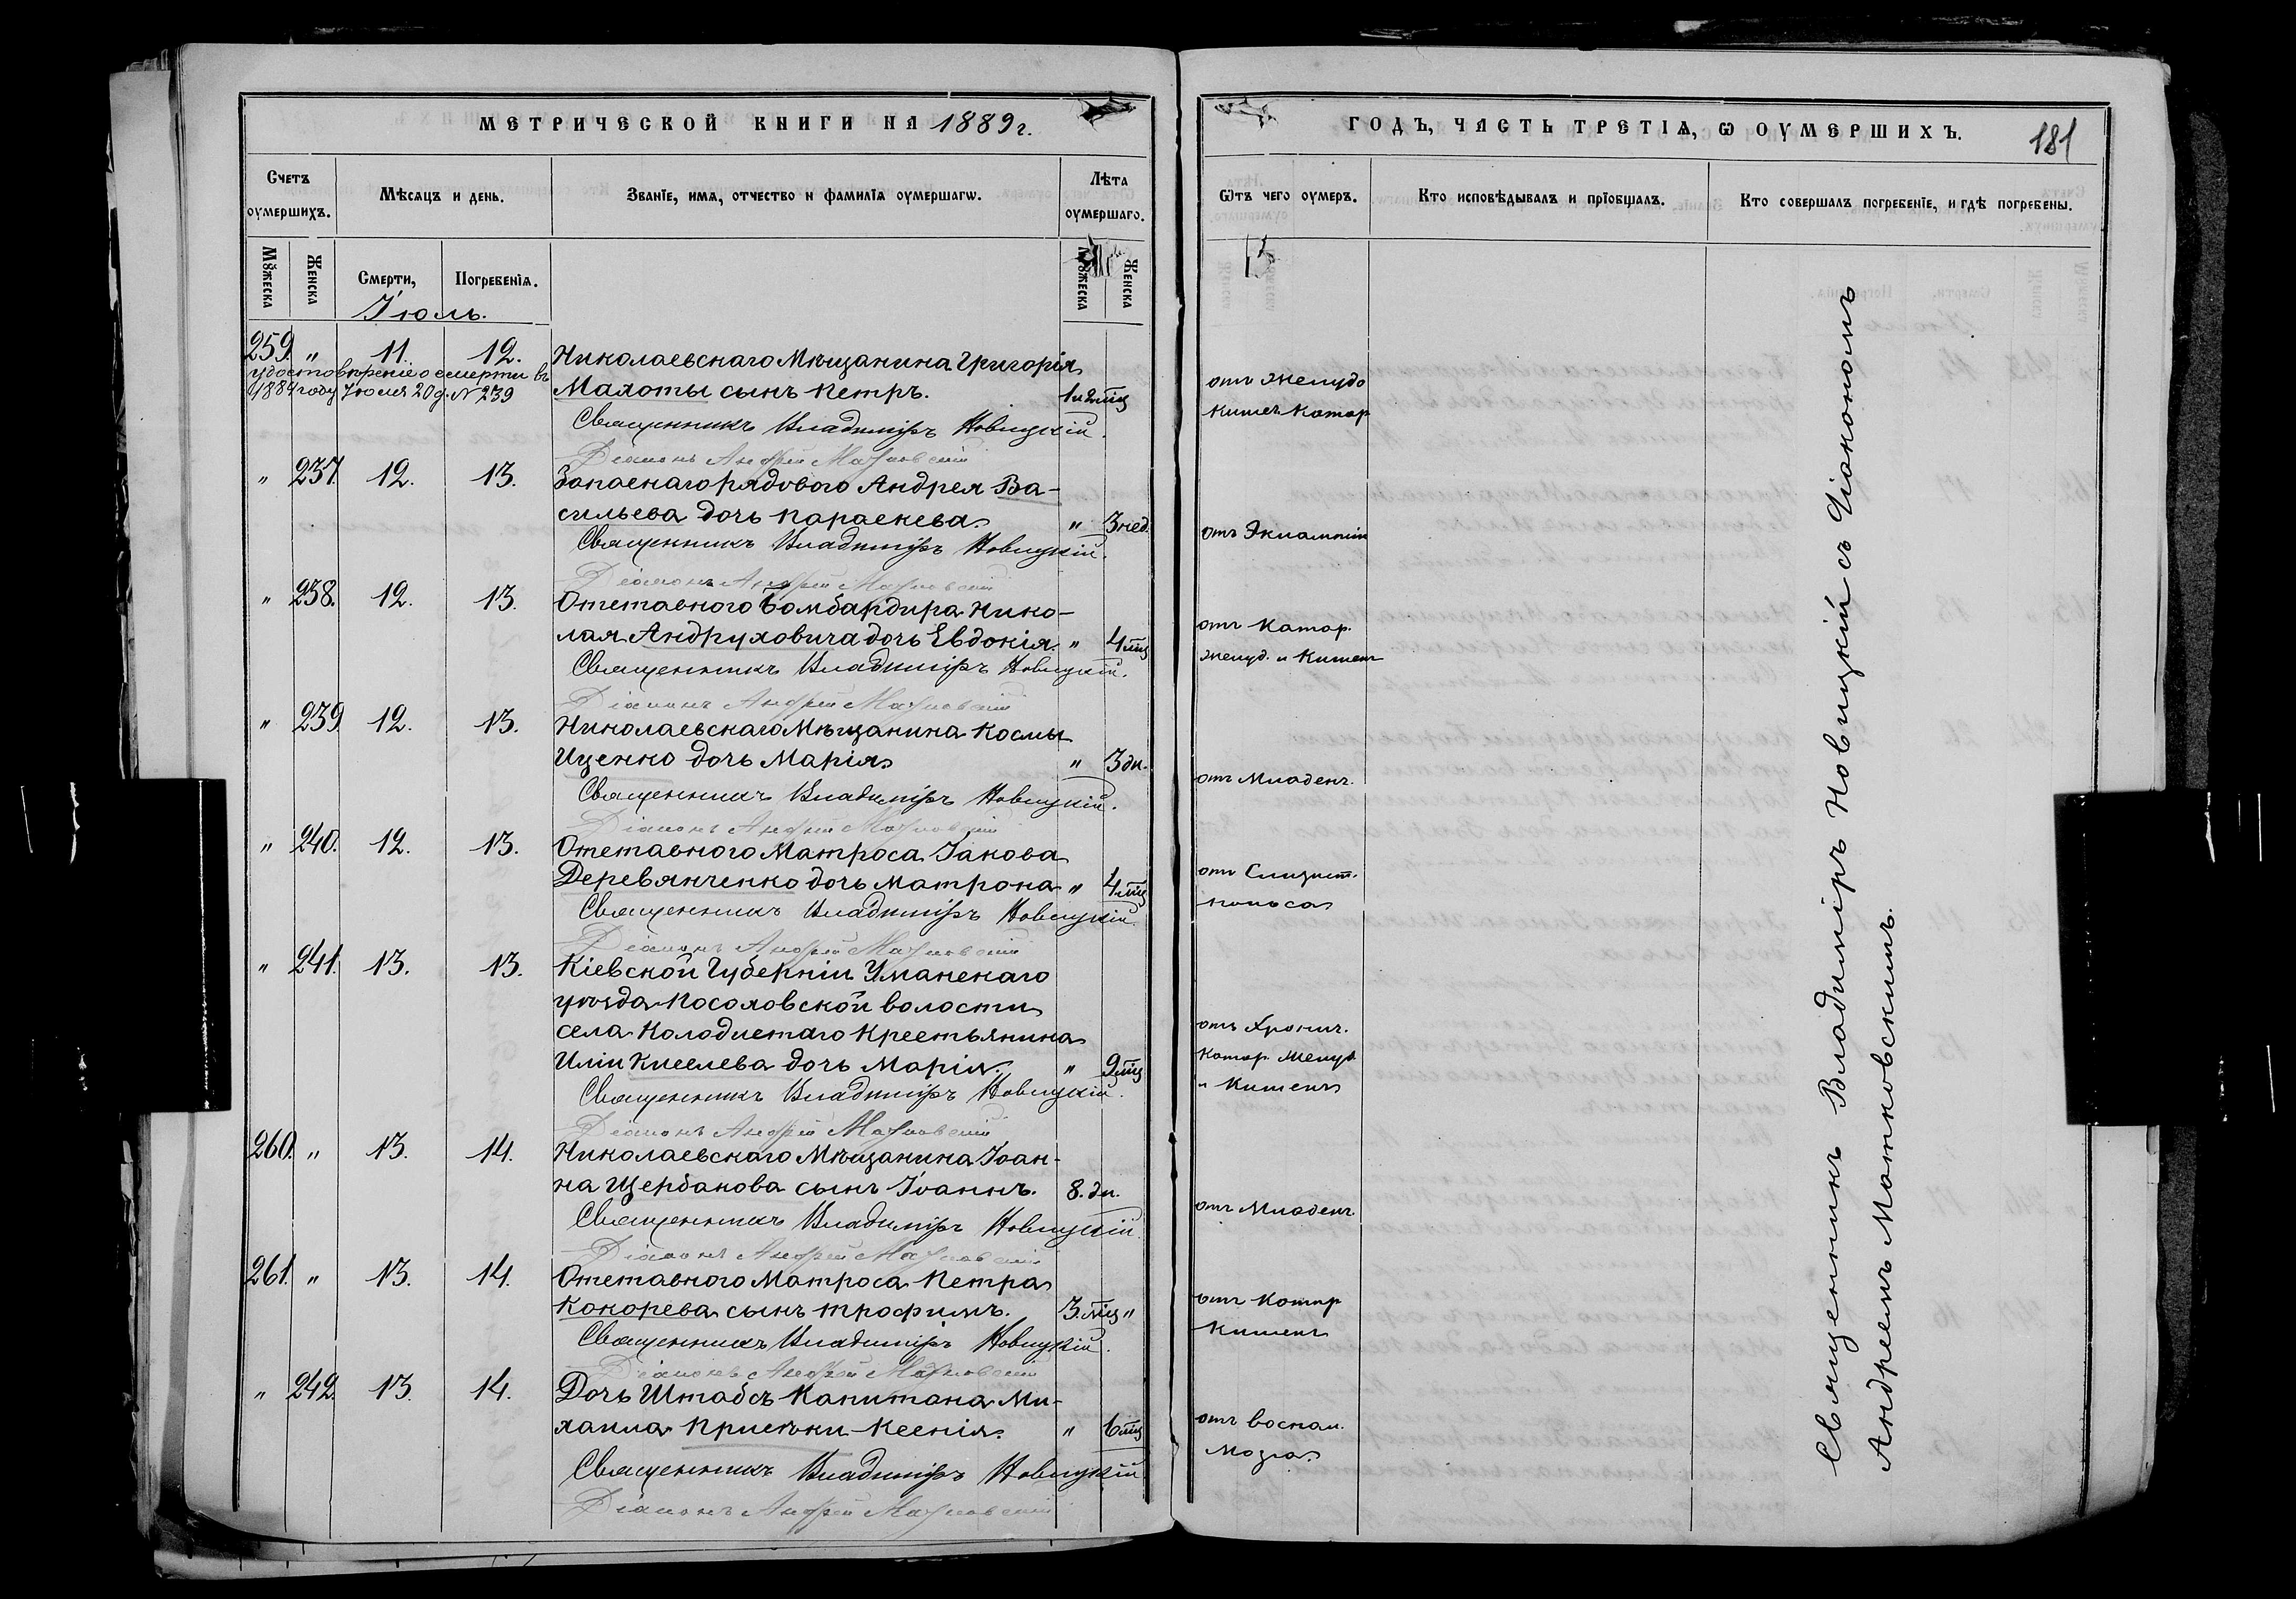 МЕТРИЧЕСКОЙ КНИГИ НА 1889 г.
Счетъ оумершихъ.
Мѣсяцъ и день.
Званіе, имя, отчество и фамилія оумершагѡ.
Лѣта оумершаго.
Мꙋжеска
Женска
Смерти,
Погребенія.
Мꙋжеска
Женска
Іюль.
259. " 11. 12. Николаевскаго Мѣщанина Григорія
удостовѣреніе о смерти въ
1889 году Іюля 20 д. № 239
Малоты сынъ Петръ. 1 и 2 мц
Священникъ Владиміръ Новицкій.
Діаконъ Андрей Матковскій
" 237. 12. 13. Запаснаго рядового Андрея Ва-
сильева дочь Параскева. " 3 нед.
Священникъ Владиміръ Новицкій.
Діаконъ Андрей Матковскій
" 238. 12. 13. Отставного Бомбардира Нико-
лая Андруховича дочь Евдокія. " 4 мц
Священникъ Владиміръ Новицкій.
Діаконъ Андрей Матковскій
" 239. 12. 13. Николаевскаго Мѣщанина Космы
Ищенко дочь Марія. " 3 дн.
Священникъ Владиміръ Новицкій.
Діаконъ Андрей Матковскій
" 240. 12. 13. Отставного Матроса Іакова
Деревянченко дочь Матрона " 4 мц
Священникъ Владиміръ Новицкій.
Діаконъ Андрей Матковскій
" 241. 13. 13. Кіевской Губерніи Уманскаго
уѣзда Косоловской волости
села Колодистаго Крестьянина
Иліи Киселева дочь Марія. " 9 мц
Священникъ Владиміръ Новицкій.
Діаконъ Андрей Матковскій
260. " 13. 14. Николаевскаго Мѣщанина Іоан-
на Щербакова сынъ Іоаннъ. 8. дн.
Священникъ Владиміръ Новицкій.
Діаконъ Андрей Матковскій
261. " 13. 14. Отставного Матроса Петра
Кокорева сынъ Трофимъ. 3. мц "
Священникъ Владиміръ Новицкій.
Діаконъ Андрей Матковскій
" 242. 13. 14. Дочь Штабсъ Капитана Ми-
хаила Присѣки Ксенія. " 6 мц
Священникъ Владиміръ Новицкій
Діаконъ Андрей Матковскій
ГОДЪ, ЧАСТЬ ТРЕТІѦ, Ѡ ОУМЕРШИХЪ.
181
Ѿтъ чего оумеръ.
Кто исповѣдывалъ и пріобщалъ.
Кто совершалъ погребеніе, и гдѣ погребены.
отъ Желудо
кишеч Катар
отъ Эклампсіи
отъ Катар.
желуд. и Кишекъ
отъ Младенч.
отъ Слизист.
поноса
отъ Хронич.
Катар. Желуд
и Кишекъ
отъ Младенч.
отъ Катар
Кишекъ
отъ воспал.
мозга.
Священникъ Владиміръ Новицкій съ Діакономъ
Андреемъ Матковскимъ.